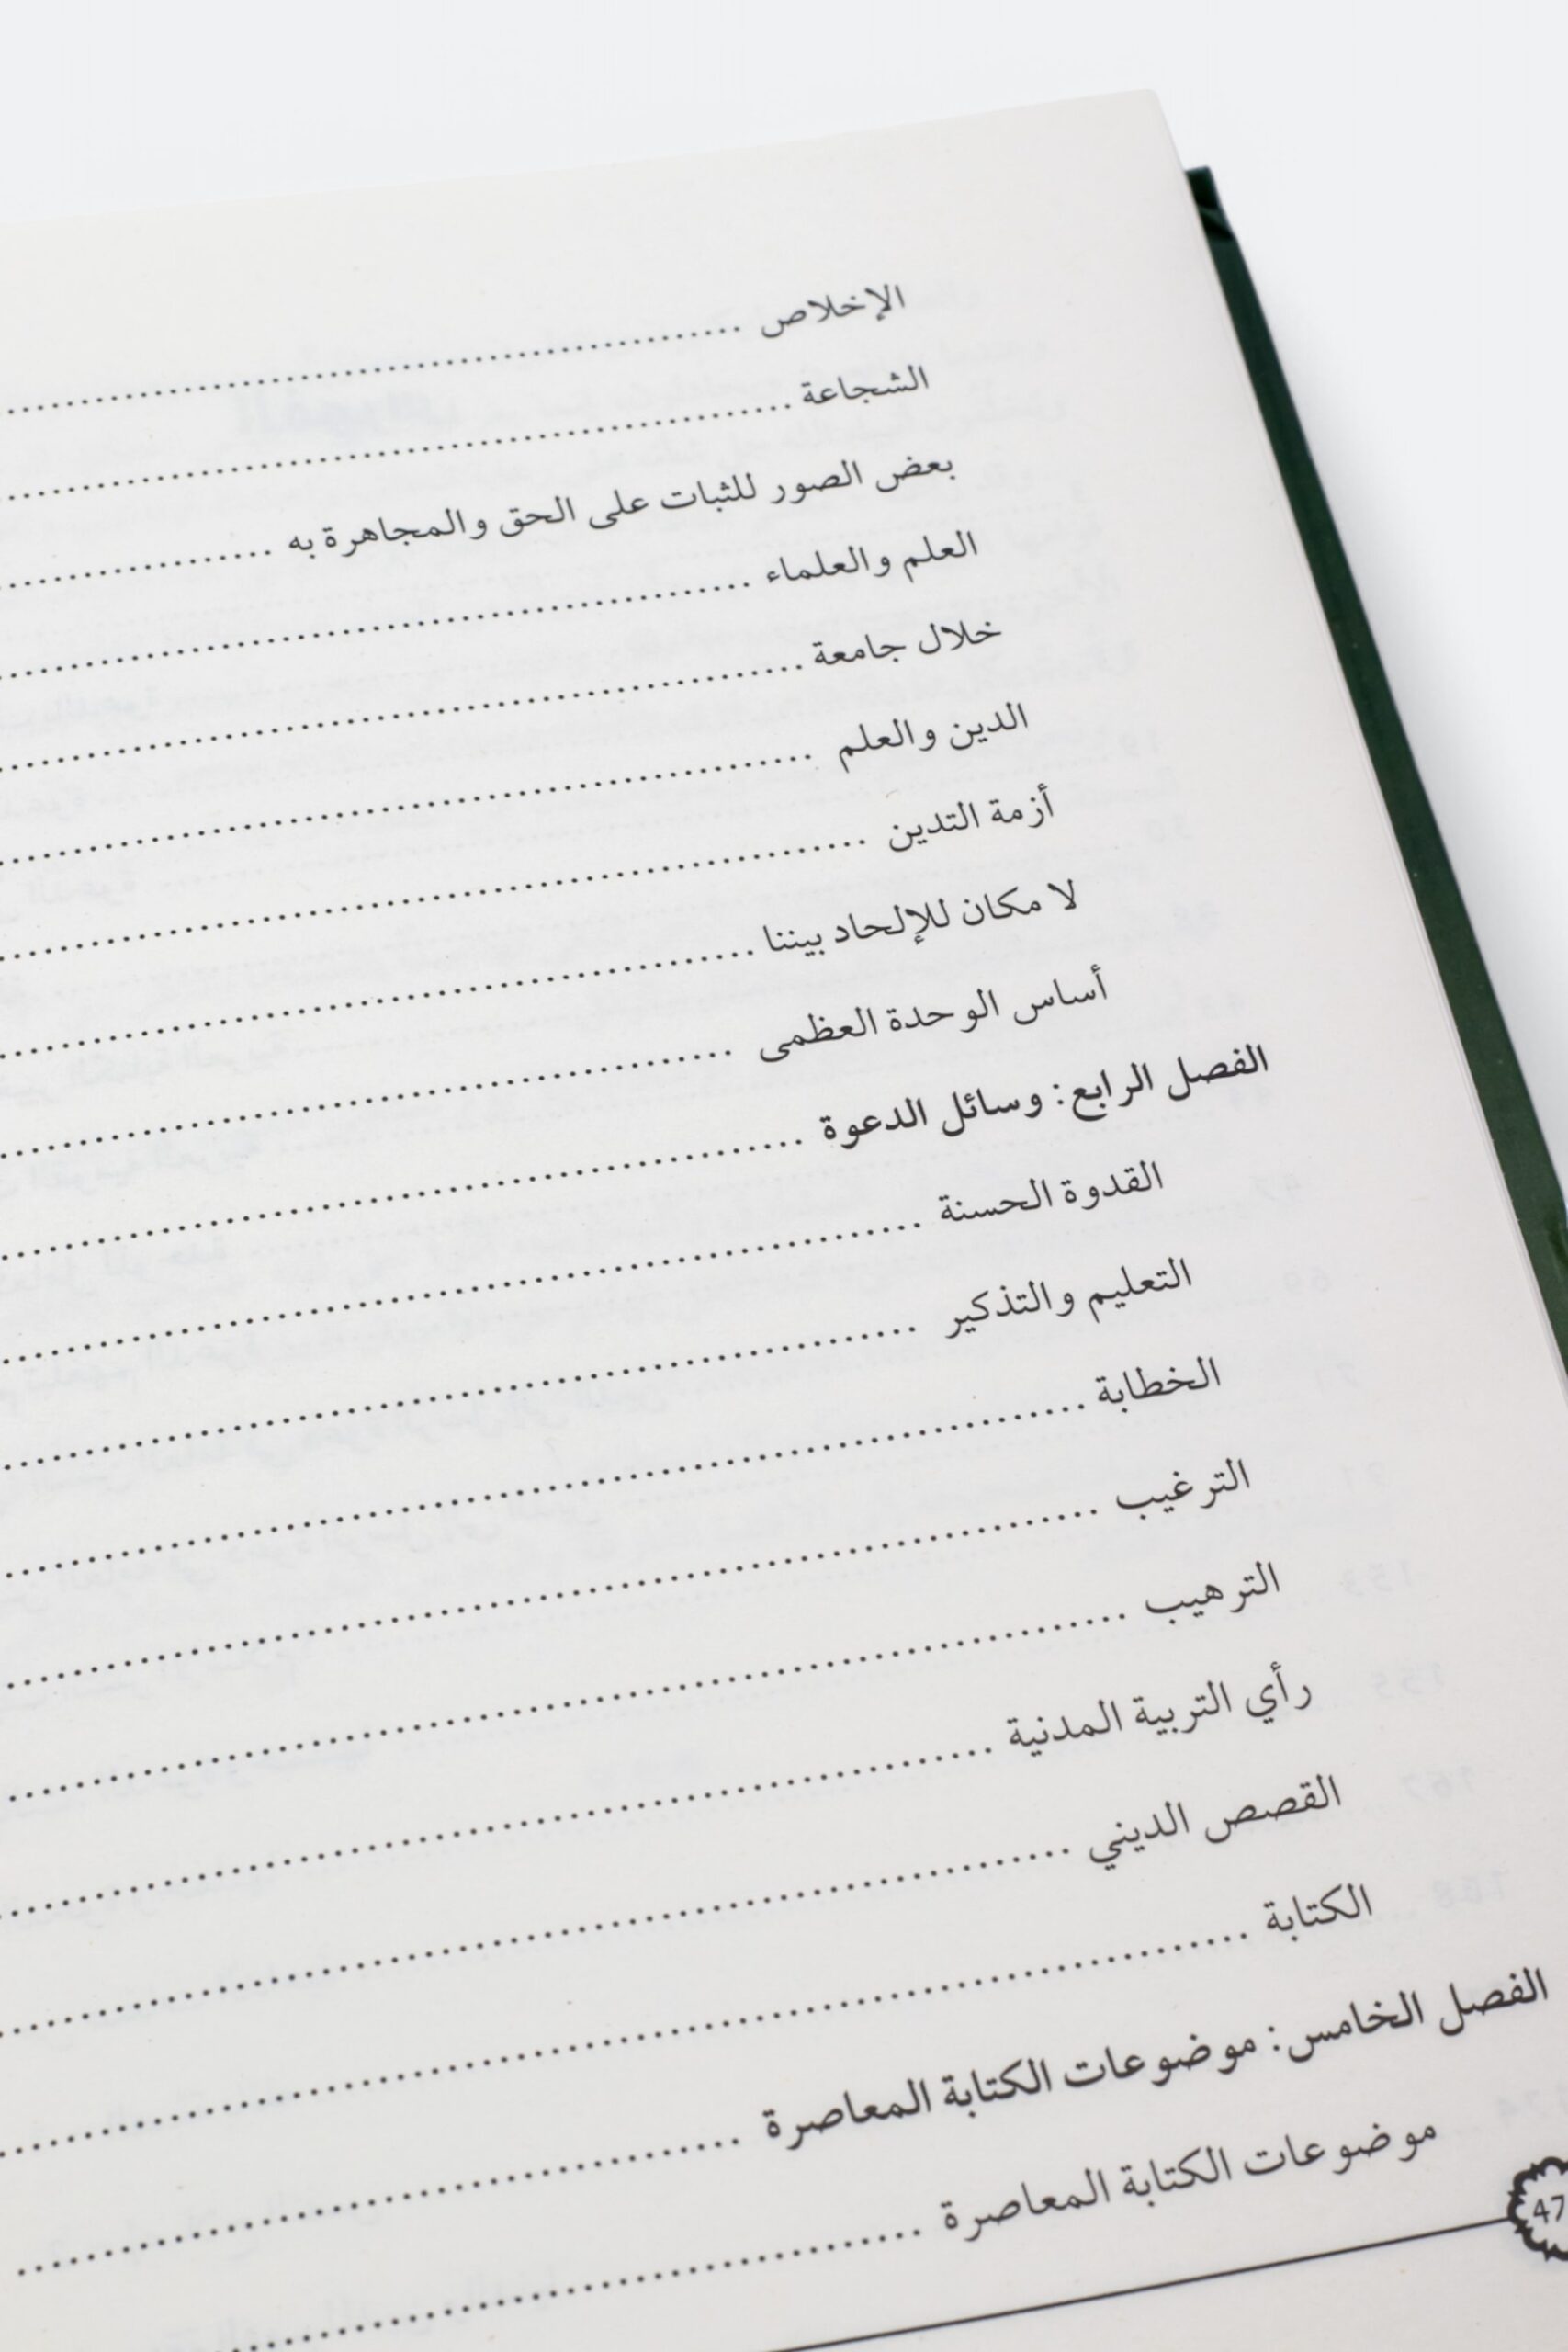 الإخلاص
الشجاعة
بعض الصور للثبات على الحق والمجاهرة به
العلم والعلماء
خلال جامعة
الدين والعلم
أزمة التدين
لا مكان للإلحاد بيننا
أساس الوحدة العظمى
الفصل الرابع: وسائل الدعوة
القدوة الحسنة
التعليم والتذكير
الخطابة
الترغيب
الترهيب
رأي التربية المدنية
القصص الديني
الكتابة
الفصل الخامس: موضوعات الكتابة المعاصرة
موضوعات الكتابة المعاصرة